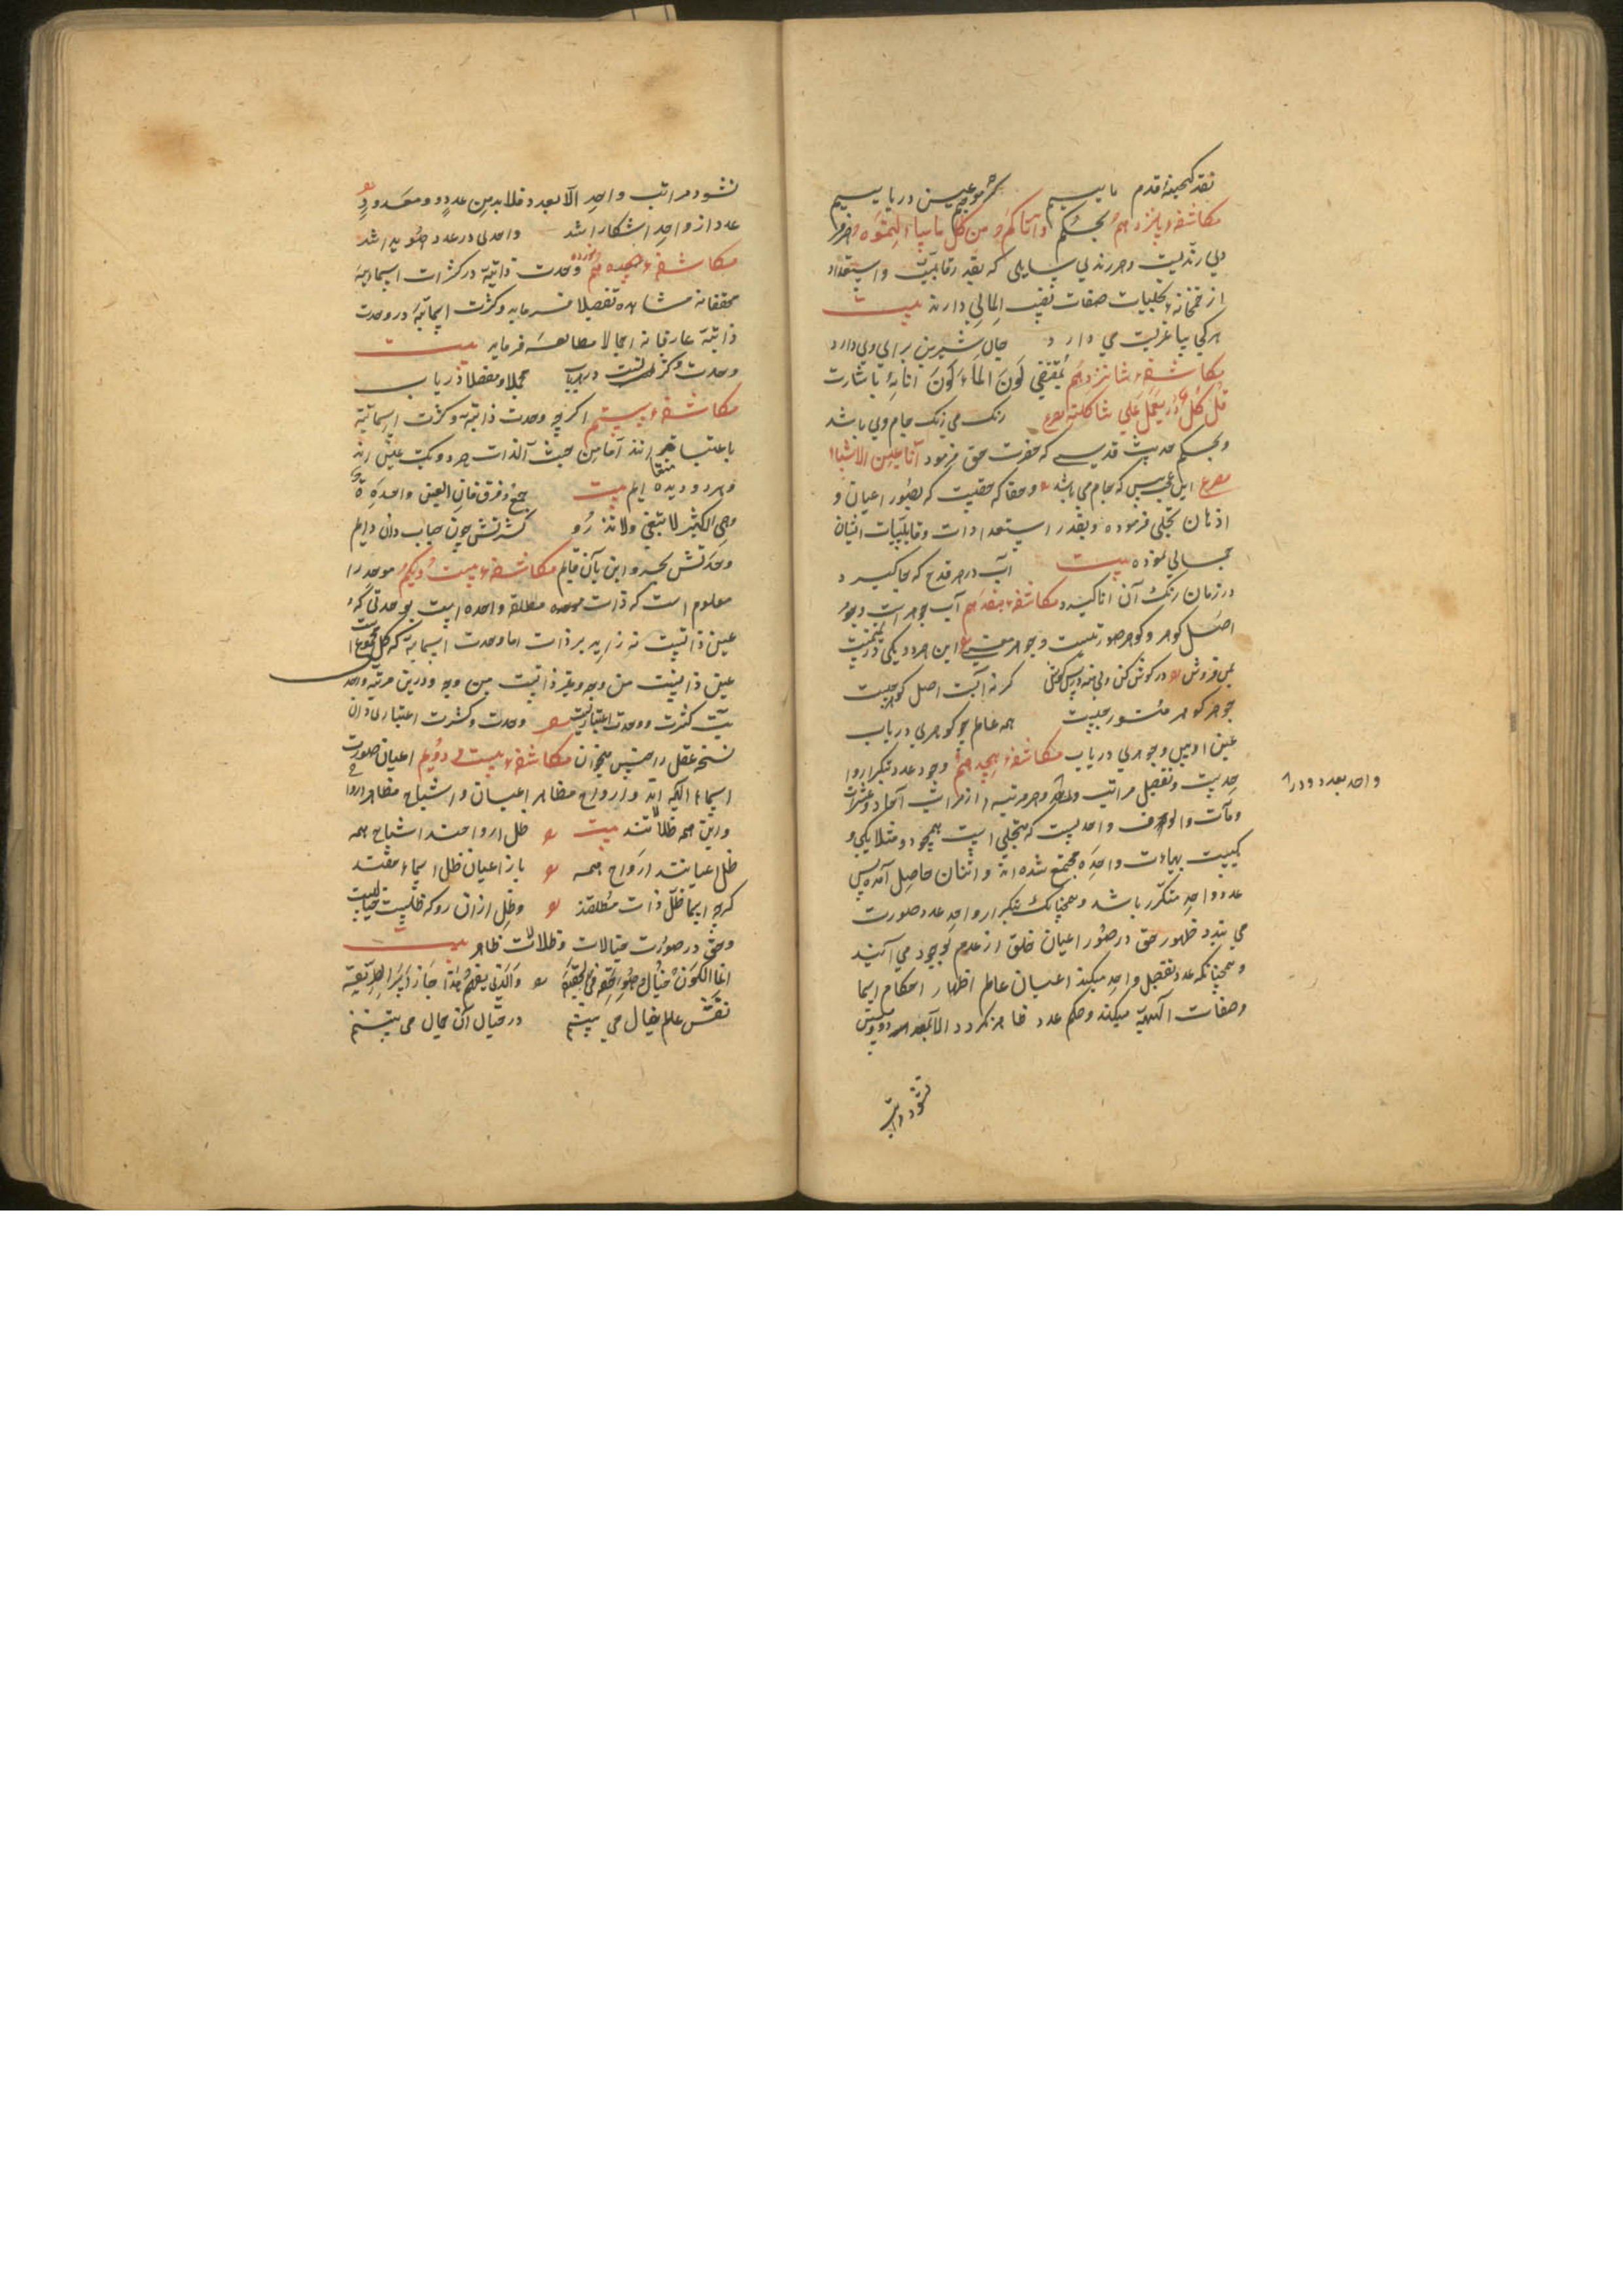 نقد گنجینهٔ قدم ماییم گر موجیم عین دریاییم
مکاشفهٔ پانزدهم بحکم واتاکم من کل ما سألتموه هر فر
دی رندیست و هر رندی سایلی که بقدر قابلیت و استعداد
از خمخانهٔ تجلیات صفات نصیب المالی دارند بیت
هر کی ساغریست می دارد جان شیرین برای وی دارد
مکاشفهٔ شانزدهم بمقتضی لون الماء لون انائه باشارت
قل کل یعمل علی شاکلته مصرع رنگ می رنگ جام وی باشد
و بحکم حدیث قدسی که حضرت حق فرمود انا عین الاشیاء
مصرع این عجب بین که جام می باشد و حقا که حقست که بصور اعیان و
اذهان تجلی فرموده و بقدر استعدادات و قابلیات انشان
جمالی نموده بیت آب در هر قدح که جا گیرد
در زمان رنگ آن انا گیرد مکاشفهٔ هفدهم آب جوهر است و جوهر
اصل گوهر و گوهر صورتیست و جوهر معنی این هر دو یکی در ثمنیت
بمن فروش در گوش کن و بی منه در پس گوش گر نه آبست اصل گوهر چیست
جوهر گوهر منور چیست همه عالم چو گوهری دریاب
عین او بین و جوهری دریاب مکاشفهٔ هیجدهم وجود عدد بتکرار وا
حدیست و تفصیل مراتب واحد و هر مرتبه از مراتب آحاد و عشرات
و مآت و الوف واحدیست که متجلی است همچو دو مثلا یکی و
یکیست بهیأت واحده مجتمع شده اند و اثنان حاصل آمده پس
عدد واحد متکرر باشد و همچنانک بتکرار واحد عدد صورت
می بندد ظهور حق در صور اعیان خلق از عدم بوجود می آیند
و همچنانکه عدد تفصیل واحد میکند اعیان عالم اظهار احکام اسما
و صفات آلهیه میکند و حکم عدد ظاهر نگردد الا بمعدود و
نشود مراتب
واحد بعدد و در
نشود مراتب واحد الا بعدد فلا بد من عدد و معدود
عدد از واحد آشکارا شد واحدی در عدد هویدا شد
مکاشفهٔ نوزدهم وحدت ذاتیه در کثرات اسمائیه
محققانه مشاهده تفصیلا فرماید و کثرت اسمائیه در وحدت
ذاتیه عارفانه اجمالا مطالعه فرماید بیت
وحدت و کثرتست دریاب مجملا و مفصلا دریاب
مکاشفهٔ بیستم اگرچه وحدت ذاتیه و کثرت اسمائیه
باعتبار متغایرانند اما من حیث الذات هر دو یک عین اند
و هر دو دیده ایم بیت جمع و فرق فان العین واحدة
وهی الکثیر لا تبقی ولا تذر و کثرتش چون حباب دان دایم
وحدتش بحر و این بآن قایم مکاشفهٔ بیست و یکم موحد را
معلوم است که ذات مطلقه واحده است بوحدتی که
عین ذاتست نه زاید بر ذات اما وحدت اسمایه که کل مجموع
عین ذاتست من وجه و غیر ذاتست من وجه و درین مرتبه واحد
یت کثرت و وحدت اعتباریست وحدت و کثرت اعتباری دان
نسخهٔ عقل را چنین میخوان مکاشفهٔ بیست و دویم اعیان صورت
اسماء الهیه اند و ارواح مظاهر اعیان و اشباح مظاهر ارواح
و این همه ظلالاتند بیت ظل ارواحند اشباح همه
ظل اعیانند ارواح همه باز اعیان ظل اسماء حقند
گرچه اسما ظل ذات مطلقند و ظل ازان رو که ظلیست خیالیست
و حق در صورت خیالات و ظلالات ظاهر بیت
انما الکون خیال و هو الحق فی الحقیقة والذی یفهم هذا حاز اسرار الطریقة
نقش عالم خیال می بینم در خیال آن جمال می بینم